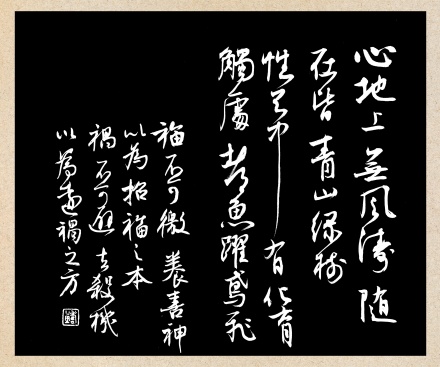 心地上無風濤隨
在皆青山綠樹
性天中有化育
觸處都魚躍鳶飛
福不可徼養喜神
以為招福之本
禍不可避去殺機
以為遠禍之方